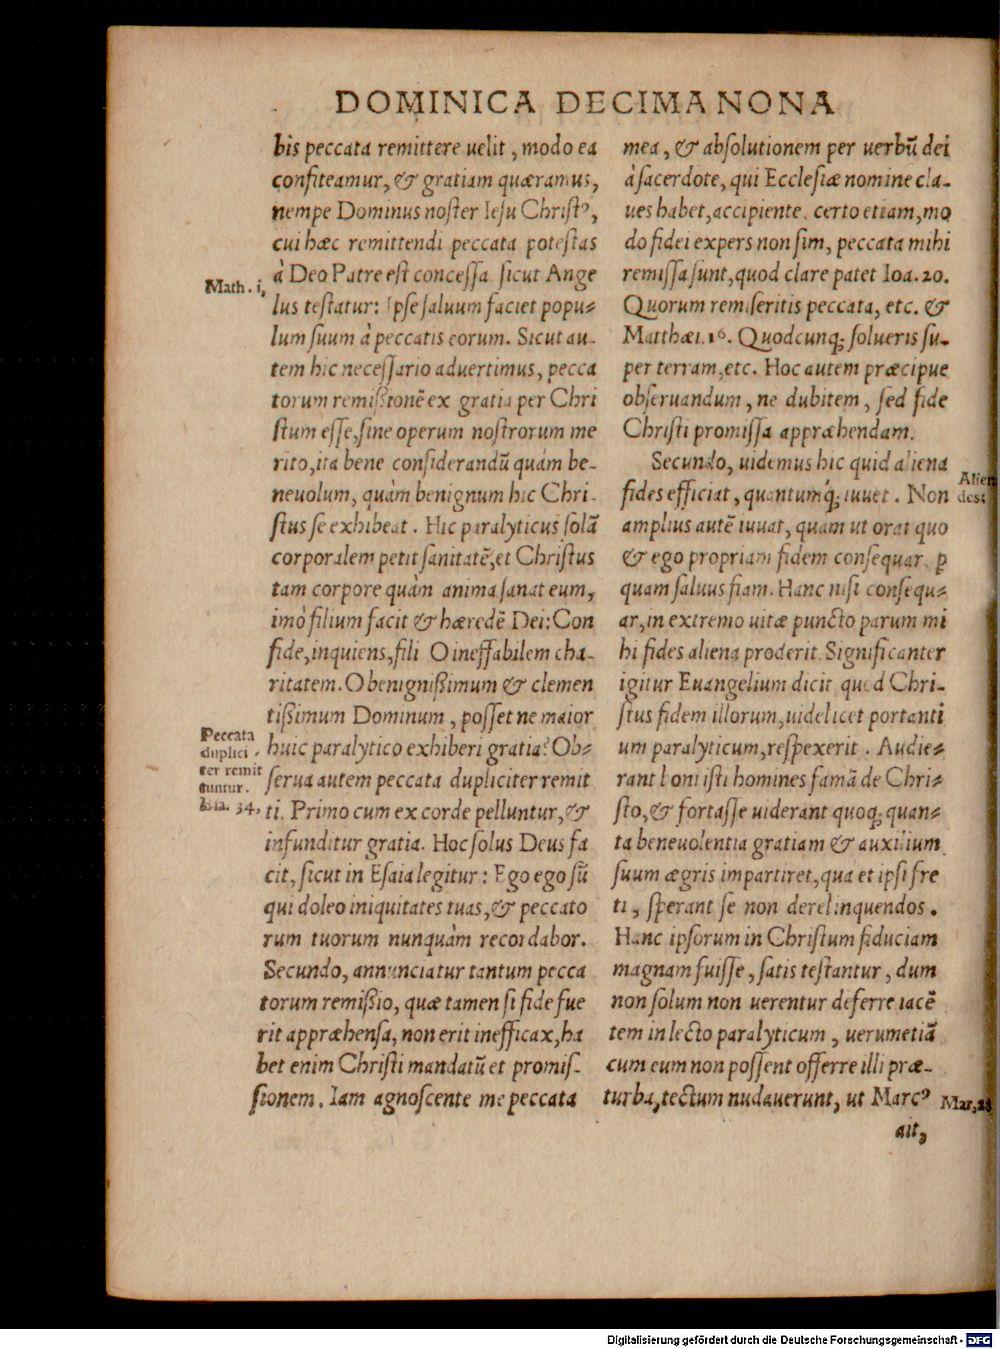 DOMINICA DECIMA NONA
bis peccata remittere uelit, modo ea
confiteamur, & gratiam quæramus,
nempe Dominus noſter Ieſu Chriſtꝰ,
cui hæc remittendi peccata poteſtas
à Deo Patre eſt conceſſa ſicut Ange
lus teſtatur: Ipſe ſaluum faciet popu⸗
lum ſuum à peccatis eorum. Sicut au-
tem hic neceſſario aduertimus, pecca
torum remißionē ex gratia per Chri
ſtum eſſe, ſine operum noſtrorum me
rito, ita bene conſiderandū quám be-
neuolum, quàm benignum hic Chri-
ſtus ſe exhibeat. Hic paralyticus ſolā
corporalem petit ſanitatē, et Chriſtus
tam corpore quàm anima ſanat eum,
imò filium facit & hæredē Dei: Con
fide, inquiens, fili O ineffabilem cha-
ritatem. O benignißimum & clemen
tißimum Dominum, poſſet ne maior
huic paralytico exhiberi gratia? Ob⸗
ſerua autem peccata dupliciter remit
ti. Primo cum ex corde pelluntur, &
infunditur gratia. Hoc ſolus Deus fa
cit, ſicut in Eſaia legitur: Ego ego ſū
qui doleo iniquitates tuas, & peccato
rum tuorum nunquàm recordabor.
Secundo, annunciatur tantum pecca
torum remißio, quæ tamen ſi fide fue
rit appræhenſa, non erit inefficax, ha
bet enim Chriſti mandatū et promiſ-
ſionem. Iam agnoſcente me peccata
Math. i,
Peccata
duplici
ter remit
tuntur.
Eſa. 34,
mea, & abſolutionem per uerbū dei
à ſacerdote, qui Eccleſiæ nomine cla-
ues habet, accipiente, certo etiam, mo
do fidei expers non ſim, peccata mihi
remiſſa ſunt, quod clare patet Ioa. 20.
Quorum remiſeritis peccata, etc. &
Matthæi. 16. Quodcunq; ſolueris ſu-
per terram, etc. Hoc autem præcipue
obſeruandum, ne dubitem, ſed fide
Chriſti promiſſa appræhendam.
Secundo, uidemus hic quid aliena
fides efficiat, quantumq́; iuuet. Non
amplius autē iuuat, quam ut orat quo
& ego propriam fidem conſequar p
quam ſaluus fiam. Hanc niſi conſequ⸗
ar, in extremo uitæ puncto parum mi
hi fides aliena proderit. Significanter
igitur Euangelium dicit quod Chri-
ſtus fidem illorum, uidelicet portanti
um paralyticum, reſpexerit. Audie⸗
rant boni iſti homines famā de Chri⸗
ſto, & fortaſſe uiderant quoq; quan⸗
ta beneuolentia gratiam & auxilium
ſuum ægris impartiret, qua et ipſi fre
ti, ſperant ſe non derelinquendos.
Hanc ipſorum in Chriſtum fiduciam
magnam fuiſſe, ſatis teſtantur, dum
non ſolum non uerentur deferre iacē
tem in lecto paralyticum, uerumetiā
cum eum non poſſent offerre illi præ-
turba, tectum nudauerunt, ut Marcꝰ
ait,
Mar. 2
Digitalisierung gefördert durch die Deutsche Forschungsgemeinschaft - DFG